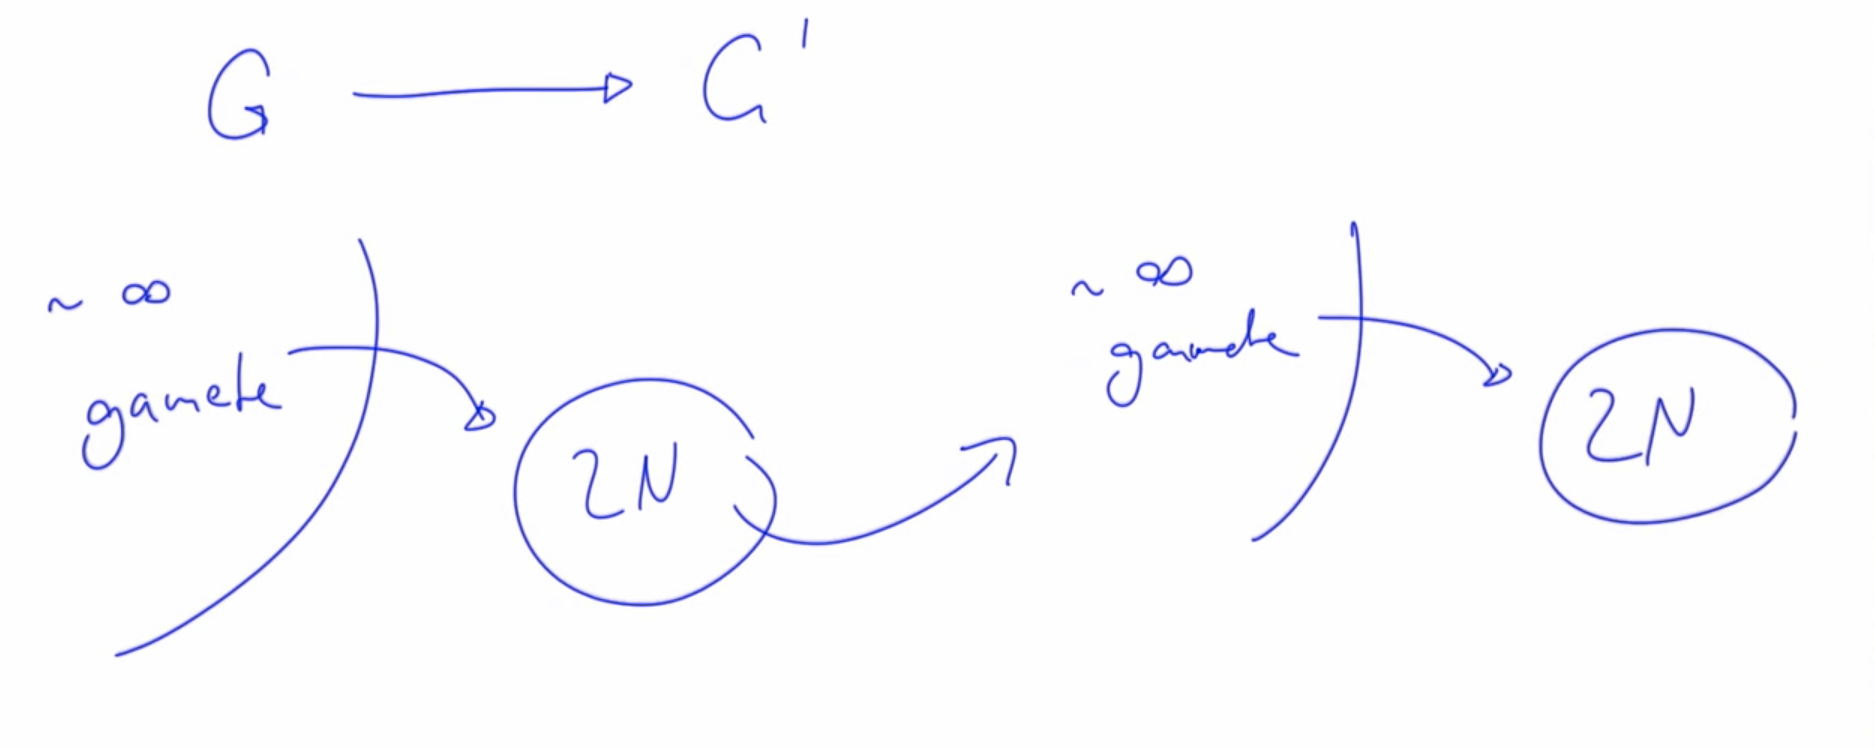 G → G'
~ ∞
gamete
2N
~ ∞
gamete
2N